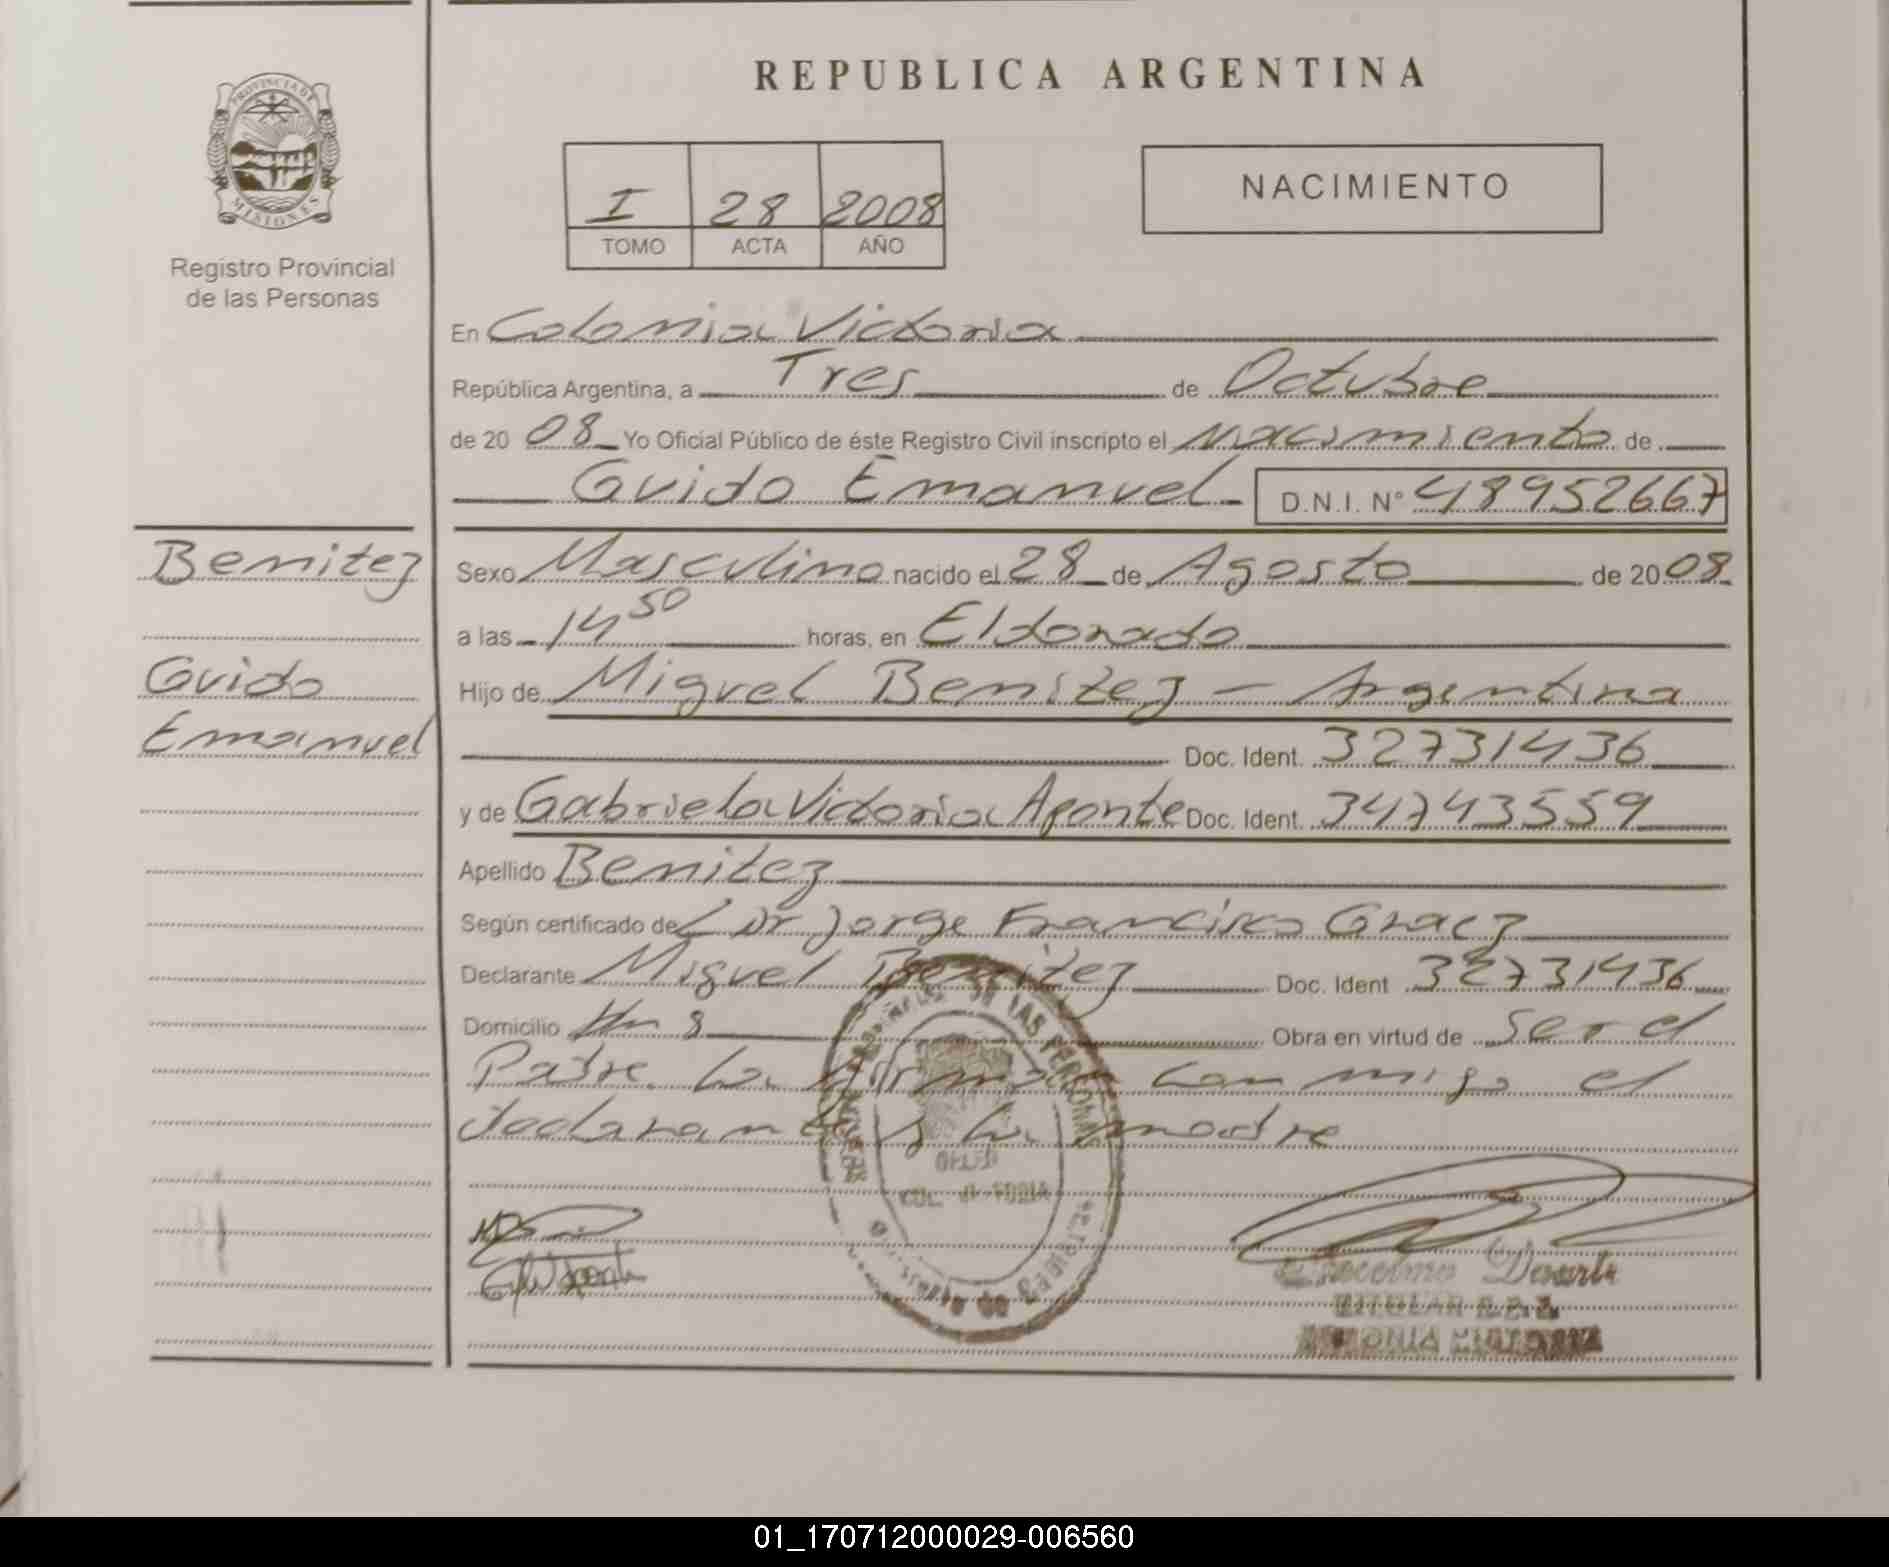 PROVINCIA DE
MISIONES
Registro Provincial
de las Personas
REPUBLICA ARGENTINA
I 28 2008
TOMO ACTA AÑO
NACIMIENTO
En Colonia Victoria
República Argentina, a Tres de Octubre
de 20 08 Yo Oficial Público de éste Registro Civil inscripto el Nacimiento de
Guido Emanuel D.N.I. Nº 48952667
Benitez
Guido
Emanuel
Sexo Masculino nacido el 28 de Agosto de 2008
a las 14 50 horas, en Eldorado
Hijo de Miguel Benitez - Argentina
Doc. Ident. 32731436
y de Gabriela Victoria Aponte Doc. Ident. 34743559
Apellido Benitez
Según certificado de Dr Jorge Francisco
Declarante Miguel Benitez Doc. Ident 32731436
Domicilio Km 8 Obra en virtud de Ser el
Padre La con migo el
declarante y la madre
DE LAS PERSONAS
Duarte
TITULAR
COLONIA VICTORIA
01_170712000029-006560